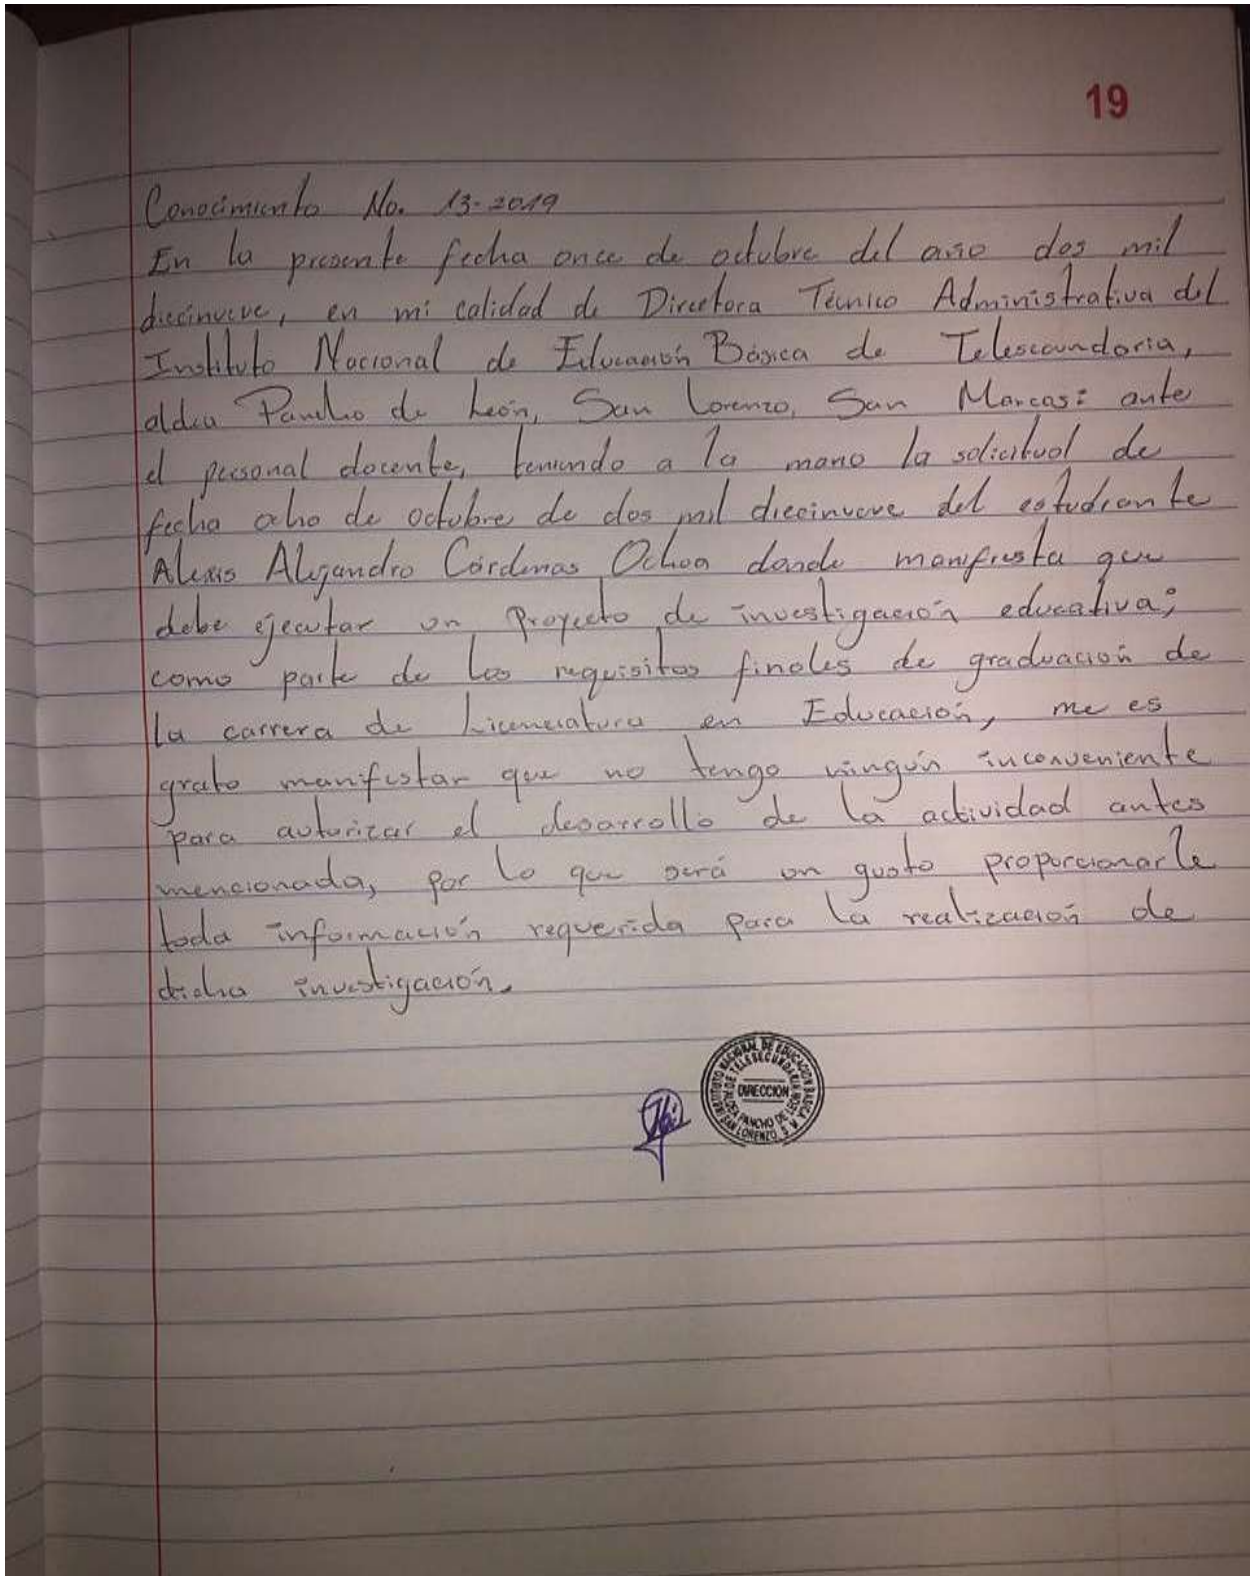 19
Conocimiento No. 13-2019
En la presente fecha once de octubre del año dos mil
diecinueve, en mi calidad de Directora Técnico Administrativa del
Instituto Nacional de Educación Básica de Telesecundaria,
aldea Pancho de León, San Lorenzo, San Marcos: ante
el personal docente, teniendo a la mano la solicitud de
fecha ocho de octubre de dos mil diecinueve del estudiante
Alexis Alejandro Cárdenas Ochoa donde manifiesta que
debe ejecutar un Proyecto de investigación educativa;
como parte de los requisitos finales de graduación de
la carrera de Licenciatura en Educación, me es
grato manifestar que no tengo ningún inconveniente
para autorizar el desarrollo de la actividad antes
mencionada, por lo que será un gusto proporcionarle
toda información requerida para la realización de
dicha investigación.
INSTITUTO NACIONAL DE EDUCACION BASICA
DE TELESECUNDARIA
DIRECCION
ALDEA PANCHO DE LEON
SAN LORENZO, S. M.